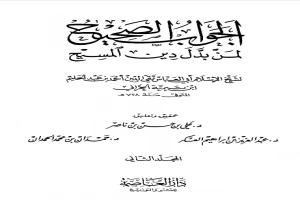 الجواب الصحيح
لمن بدل دين المسيح
لشيخ الإسلام أبي العباس تقي الدين أحمد بن عبد الحليم
ابن تيمية الحراني
المتوفى سنة ٧٢٨ هـ
تحقيق وتعليق
د. علي بن حسن بن ناصر
د. عبد العزيز بن إبراهيم العسكر
د. حمدان بن محمد الحمدان
المجلد الثاني
دار العاصمة
للنشر والتوزيع